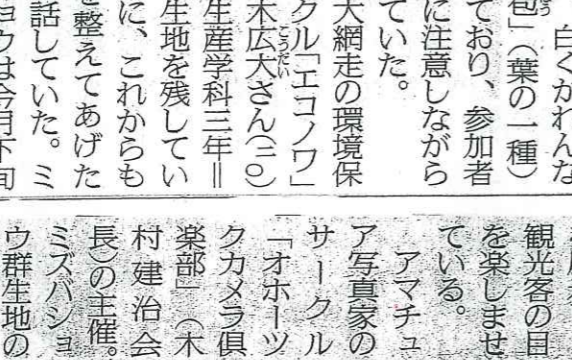 白くかれんな
苞」(葉の一種)
ており、参加者
に注意しながら
ていた。
大網走の環境保
クル「エコノワ」
木広大さん(二〇)
生産学科三年=
生地を残してい
に、これからも
を整えてあげた
話していた。ミ
ョウは今月下旬
観光客の目
を楽しませ
ている。
アマチュ
ア写真家の
サークル
「オホーツ
クカメラ倶
楽部」(木
村建治会
長)の主催。
ミズバショ
ウ群生地の